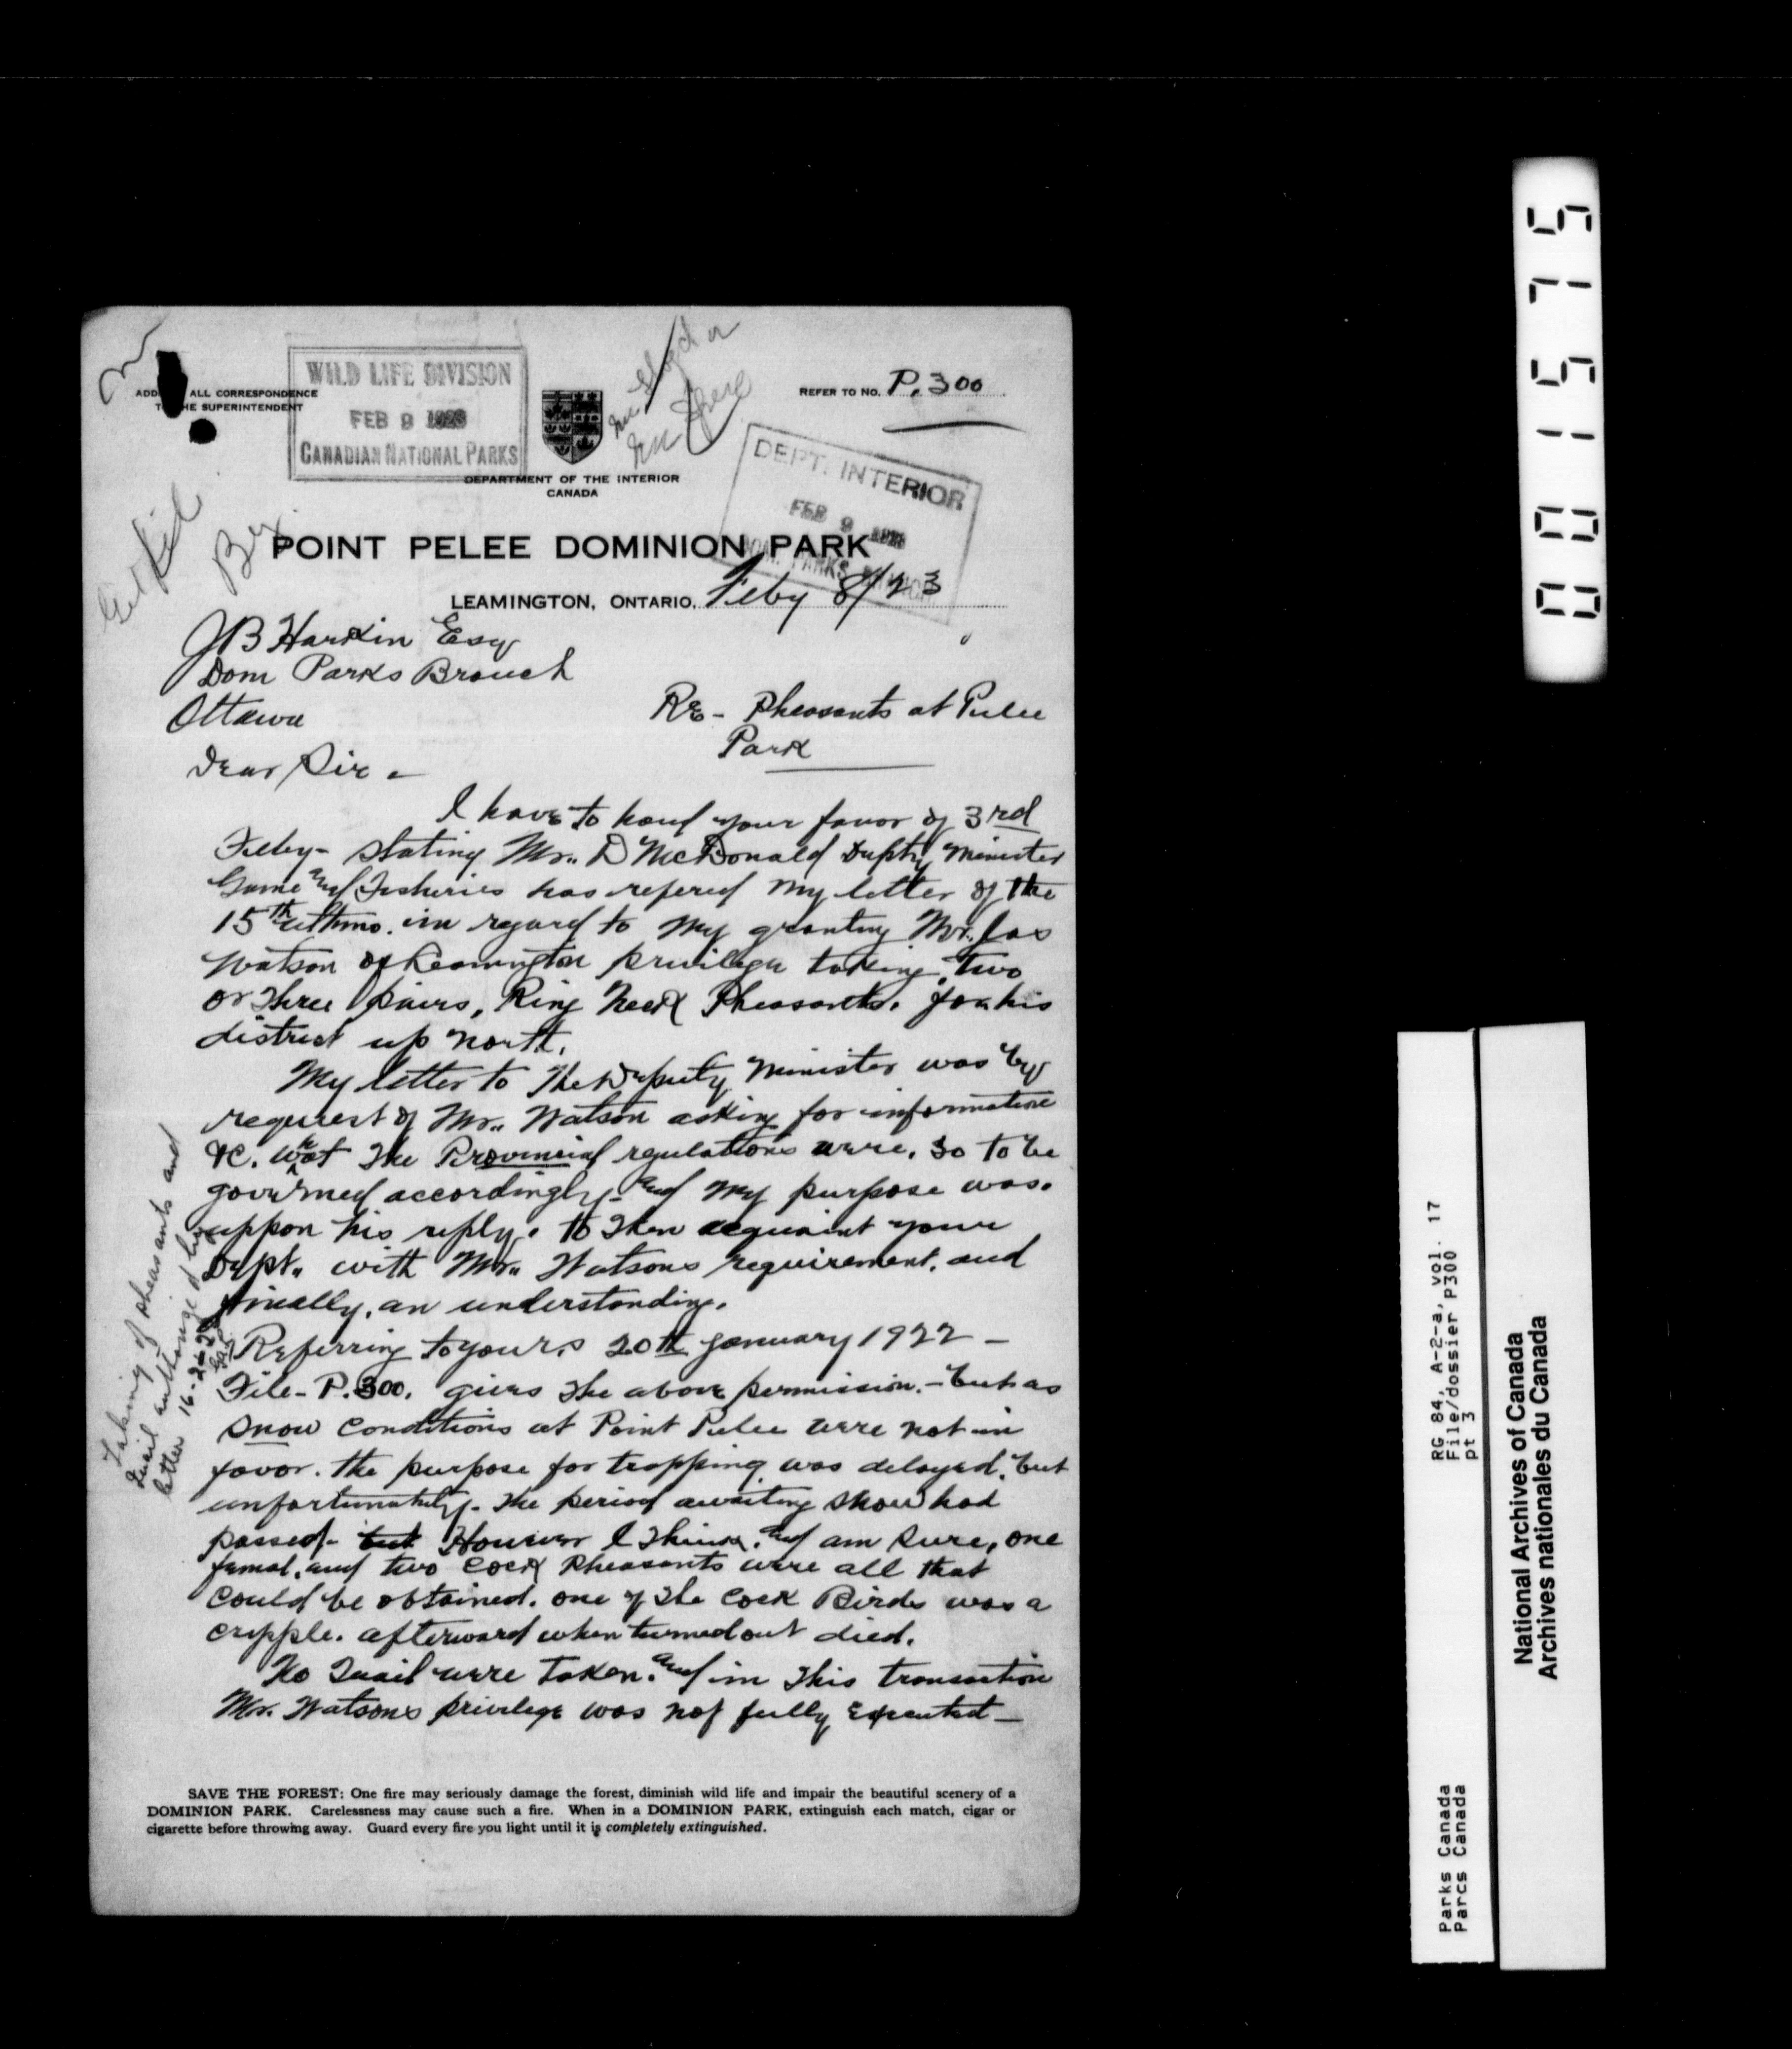 WILD LIFE DIVISION
FEB 9 1923
CANADIAN NATIONAL PARKS
ALL CORRESPONDENCE
THE SUPERINTENDENT
REFER TO NO. P. 300
DEPARTMENT OF THE INTERIOR
CANADA
DEPT. INTERIOR
FEB 9 1923
DOM. PARKS
POINT PELEE DOMINION PARK
LEAMINGTON, ONTARIO, Feby 8/23
JB Harkin Esq
Dom Parks Branch
Ottawa
Re- Pheasants at Pelee
Park
Dear Sir -
I have to hand your favor of 3rd
Feby- stating Mr. D McDonald Dupty Minister
Game and Fisheries has refered my letter of the
15th ultimo. in regard to my granting Mr. Jas
Watson of Leamington privilege taking, two
or three pairs, Ring Neck Pheasants. for his
district up north.
My letter to the Deputy Minister was by
request of Mr. Watson asking for information
&C. what the Provincial regulations were. so to be
governed accordingly- and my purpose was.
uppon his reply. to then acquaint your
Dept. with Mr. Watsons requirement. and
finally, an understanding.
Referring to yours 20th January 1922 -
File- P.300. gives the above permission. - but as
snow conditions at Point Pelee were not in
favor. the purpose for trapping was delayed. but
unfortunately. the period awaiting snow had
passed- but However I think. and am sure, one
femal. and two cock Pheasants were all that
could be obtained. one of the Cock Birds was a
cripple. afterward when turned out died.
No Quail were taken. and in this transaction
Mr. Watsons privilege was not fully executed -
Taking of pheasants and
Quail authorized by
letter 16-2-22
SAVE THE FOREST: One fire may seriously damage the forest, diminish wild life and impair the beautiful scenery of a
DOMINION PARK. Carelessness may cause such a fire. When in a DOMINION PARK, extinguish each match, cigar or
cigarette before throwing away. Guard every fire you light until it is completely extinguished.
001575
RG 84, A-2-a, vol. 17
File/dossier P300
pt 3
Parks Canada
Parcs Canada
National Archives of Canada
Archives nationales du Canada